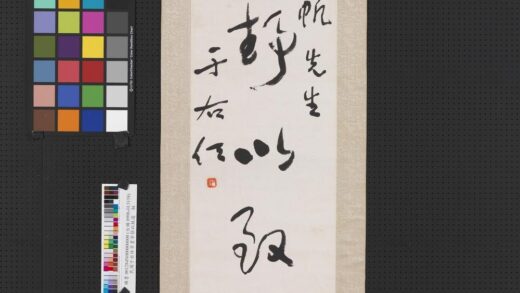 帆先生
静以致
于右任